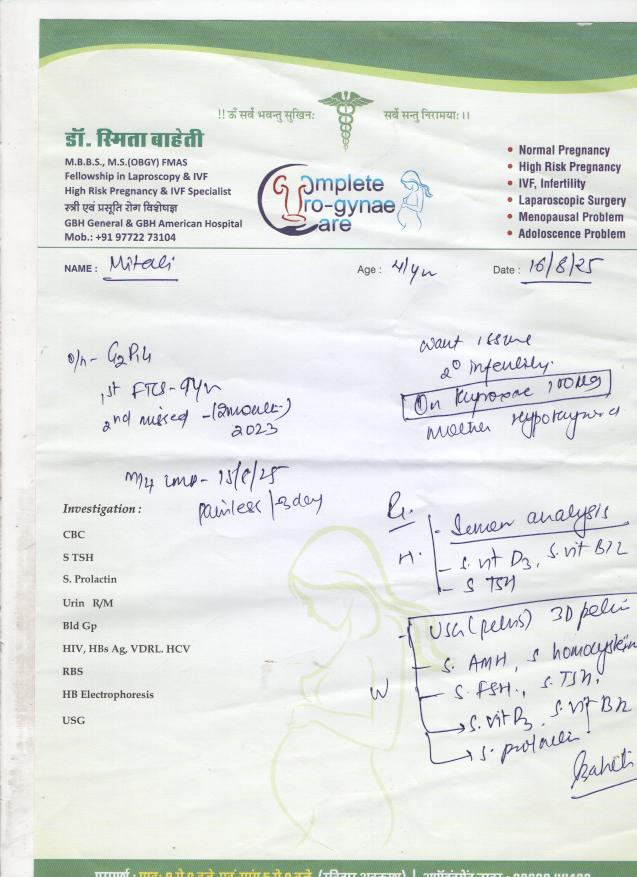 !! ॐ सर्वे भवन्तु सुखिनः सर्वे सन्तु निरामयाः ।।
डॉ. स्मिता बाहेती
M.B.B.S., M.S.(OBGY) FMAS
Fellowship in Laproscopy & IVF
High Risk Pregnancy & IVF Specialist
स्त्री एवं प्रसूति रोग विशेषज्ञ
GBH General & GBH American Hospital
Mob.: +91 97722 73104
Complete
Uro-gynae
Care
• Normal Pregnancy
• High Risk Pregnancy
• IVF, Infertility
• Laparoscopic Surgery
• Menopausal Problem
• Adoloscence Problem
NAME : Mitali Age : Date : 16/8/25
1st FTCS - 9yr
2nd missed - (2month)
2023
want issue
2° infertility.
On 100mcg
mother
LMP - 15/8/25
painless / 3day
Investigation :
CBC
S TSH
S. Prolactin
Urin R/M
Bld Gp
HIV, HBs Ag, VDRL. HCV
RBS
HB Electrophoresis
USG
H. - Semen analysis
- S. vit D3, S. vit B12
- S TSH
W - USG (pelvis) 3D pelvi
- S. AMH, S homocystein
- S. FSH., S. TSH,
S. vit D3, S. vit B12
S. prolactin
Baheti